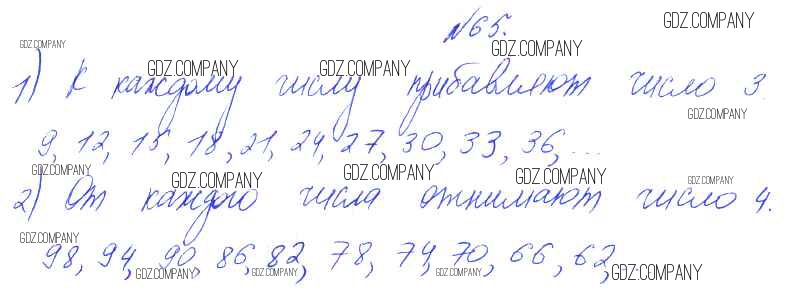 №65.
GDZ.COMPANY
GDZ.COMPANY GDZ.COMPANY
GDZ.COMPANY GDZ.COMPANY
1) К каждому числу прибавляют число 3.
GDZ.COMPANY
9, 12, 15, 18, 21, 24, 27, 30, 33, 36, ...
GDZ.COMPANY GDZ.COMPANY GDZ.COMPANY GDZ.COMPANY GDZ.COMPANY
2) От каждого числа отнимают число 4.
GDZ.COMPANY
98, 94, 90, 86, 82, 78, 74, 70, 66, 62,
GDZ.COMPANY GDZ.COMPANY GDZ.COMPANY GDZ.COMPANY